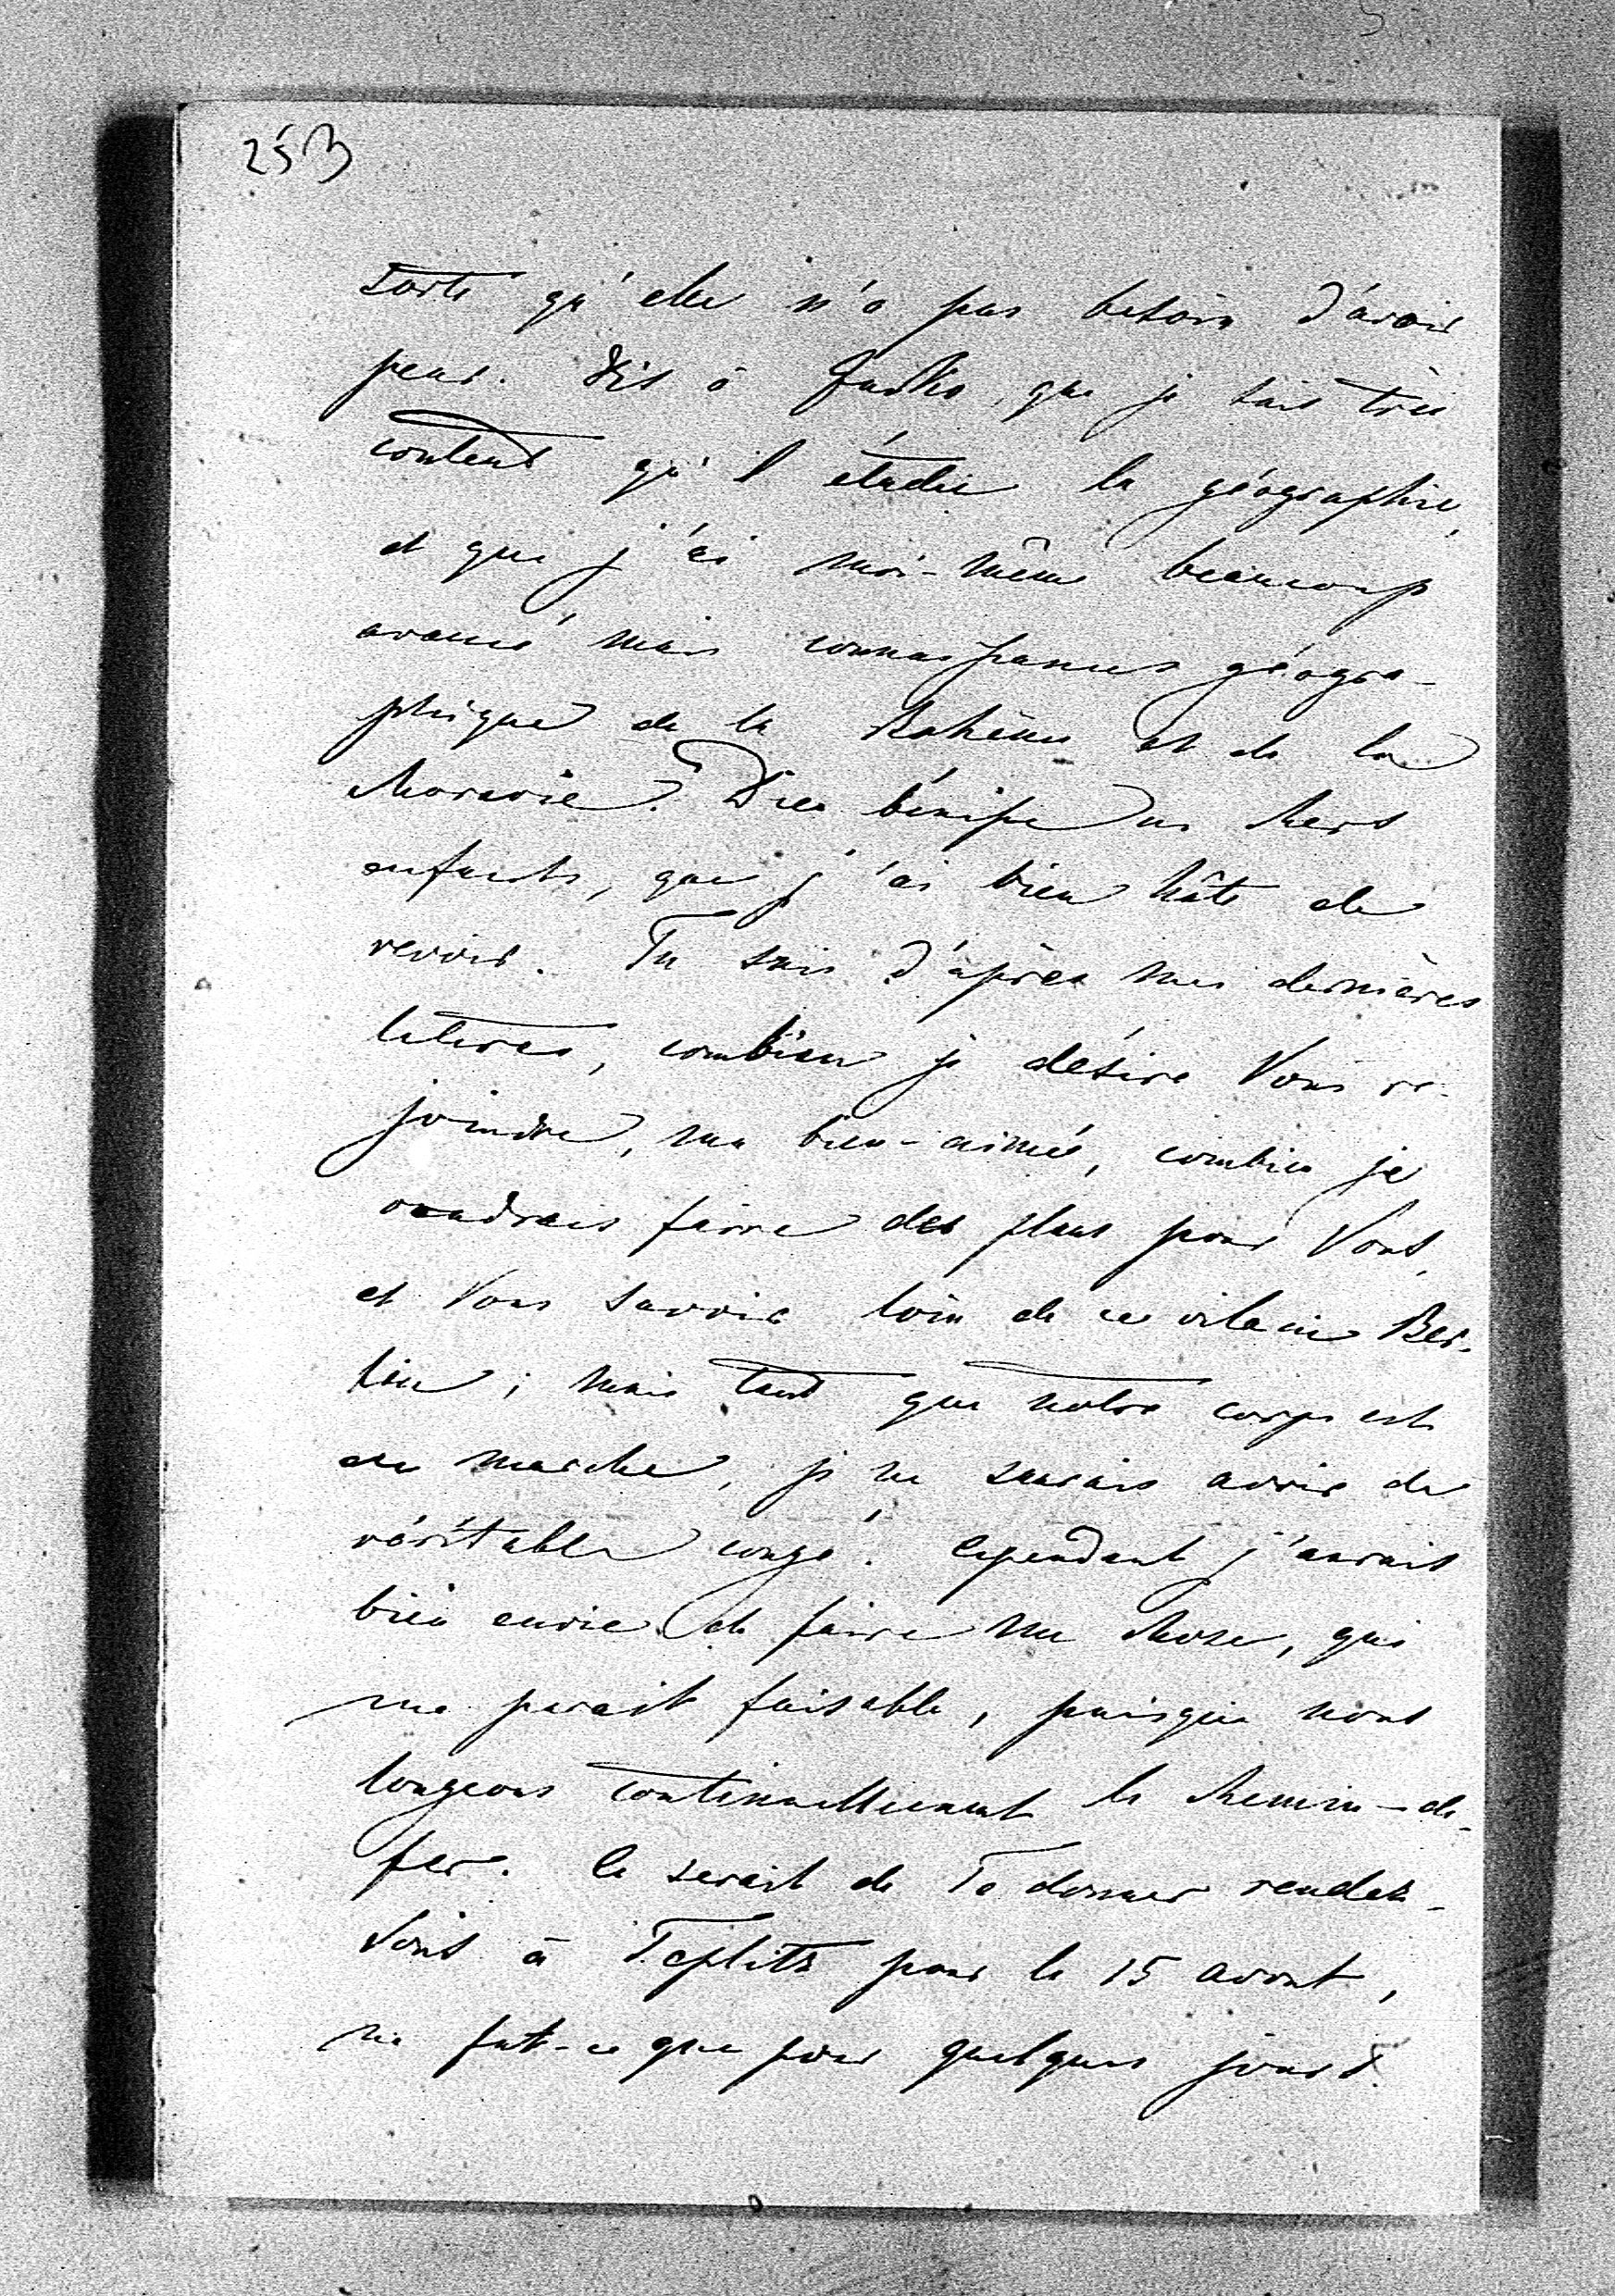 253
sorte qu'elle n'a pas besoin d'avoir
peur. Dis à que je suis très
content qu'il étudie la géographie,
et que j'ai moi-même beaucoup
avancé mais connaissances géogra-
phiques de la Bohème et de la
Moravie. Dieu bénisse ces chers
enfants, que j'ai bien hâte de
revoir. Tu sais d'après mes dernières
lettres, combien je désire Vous re-
joindre, ma bien-aimée, combien je
voudrais faire des plans pour Vous,
et Vous savoir loin de ce vilain Ber-
lin; mais tant que notre corps est
en marche, je ne saurais avoir de
véritable congé. Cependant j'aurais
bien envie de faire une chose, qui
me parait faisable, puisque nous
longeons continuellement le chemin-de-
fer. Ce serait de Te donner rendez-
vous à Teplitz pour le 15 avout,
ne fut-ce que pour quelques jours.